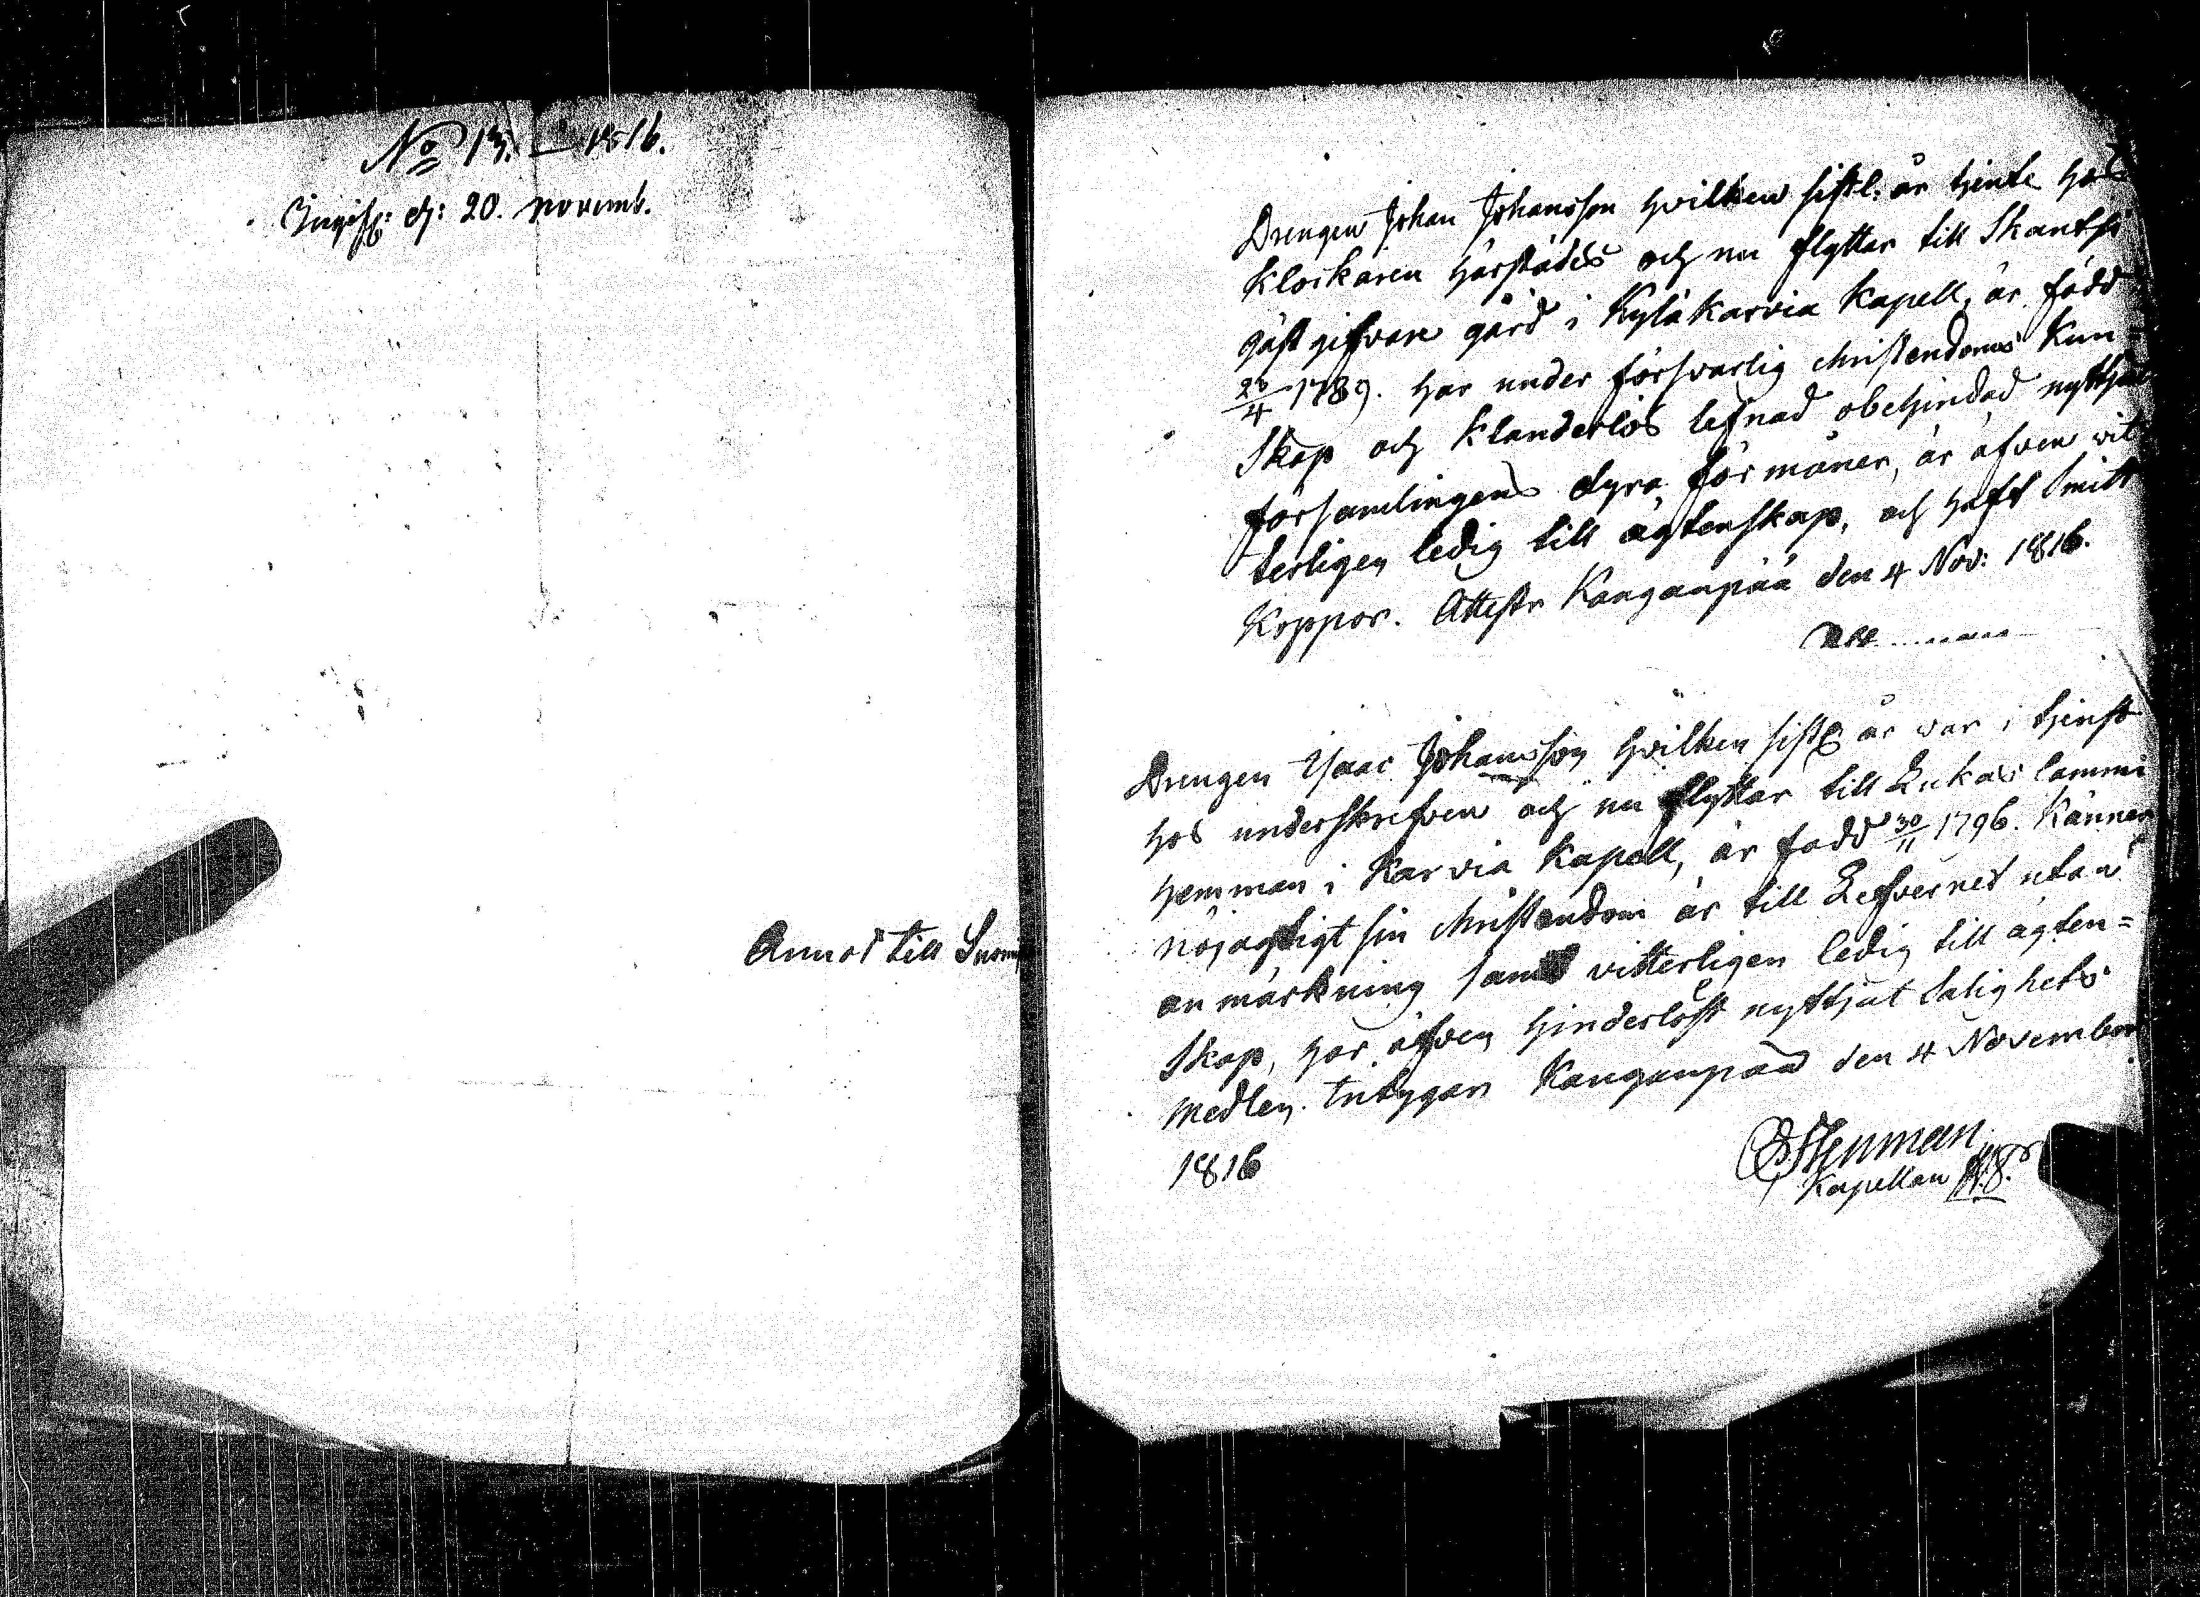 No 13. 1816.
Ingifv: d: 20. novemb.
Annor till Suom
Drengen Johan Johansson hvilken sistl. år tjente hos
Klockaren härstädes och nu flyttar till Skantsi
gästgifvare gård i Kyläkarvia Kapell, är född
23/4 1789. har under försvarlig christendoms Kun-
skap och Klanderlös lefnad obehindrad nyttjat
församlingens dyra förmåner, är äfven vit-
terligen ledig till ägtenskap, och haft Smitt
Koppor. Attestr Kanganpää den 4 Nov: 1816.
Drengen Isaac Johansson hvilken sistl år var i tjenst
hos underskrefven och nu flyttar till Lukas lammi
hemman i Karvia Kapell, är född 30/11 1796. Känner
nöjagtigt sin christendom är till Lefvernet utan
anmärkning samt vitterligen ledig till ägten=
skap, har äfven hinderlöst nyttjat Salighets
medlen. Intygar Kanganpää den 4 November
1816
Stenman
Kapellan